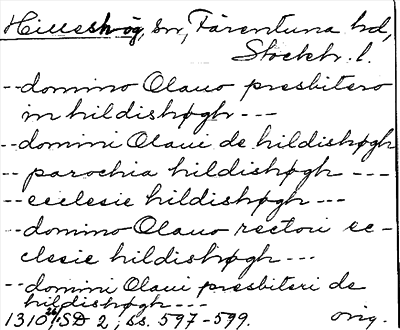 Hilleshög, sn, Färentuna hd,
Stockh. l.
--domino Olauo presbitero
in hildishøgh ---
--domini Olaui de hildishøgh
-- parochia hildishøgh ---
-- ecclesie hildishøgh ---
--domino Olauo rectori ec-
clesie hildishøgh ---
--domini Olaui presbiteri de
hildishøgh ---
1310 SD 2, ss. 597-599. orig.